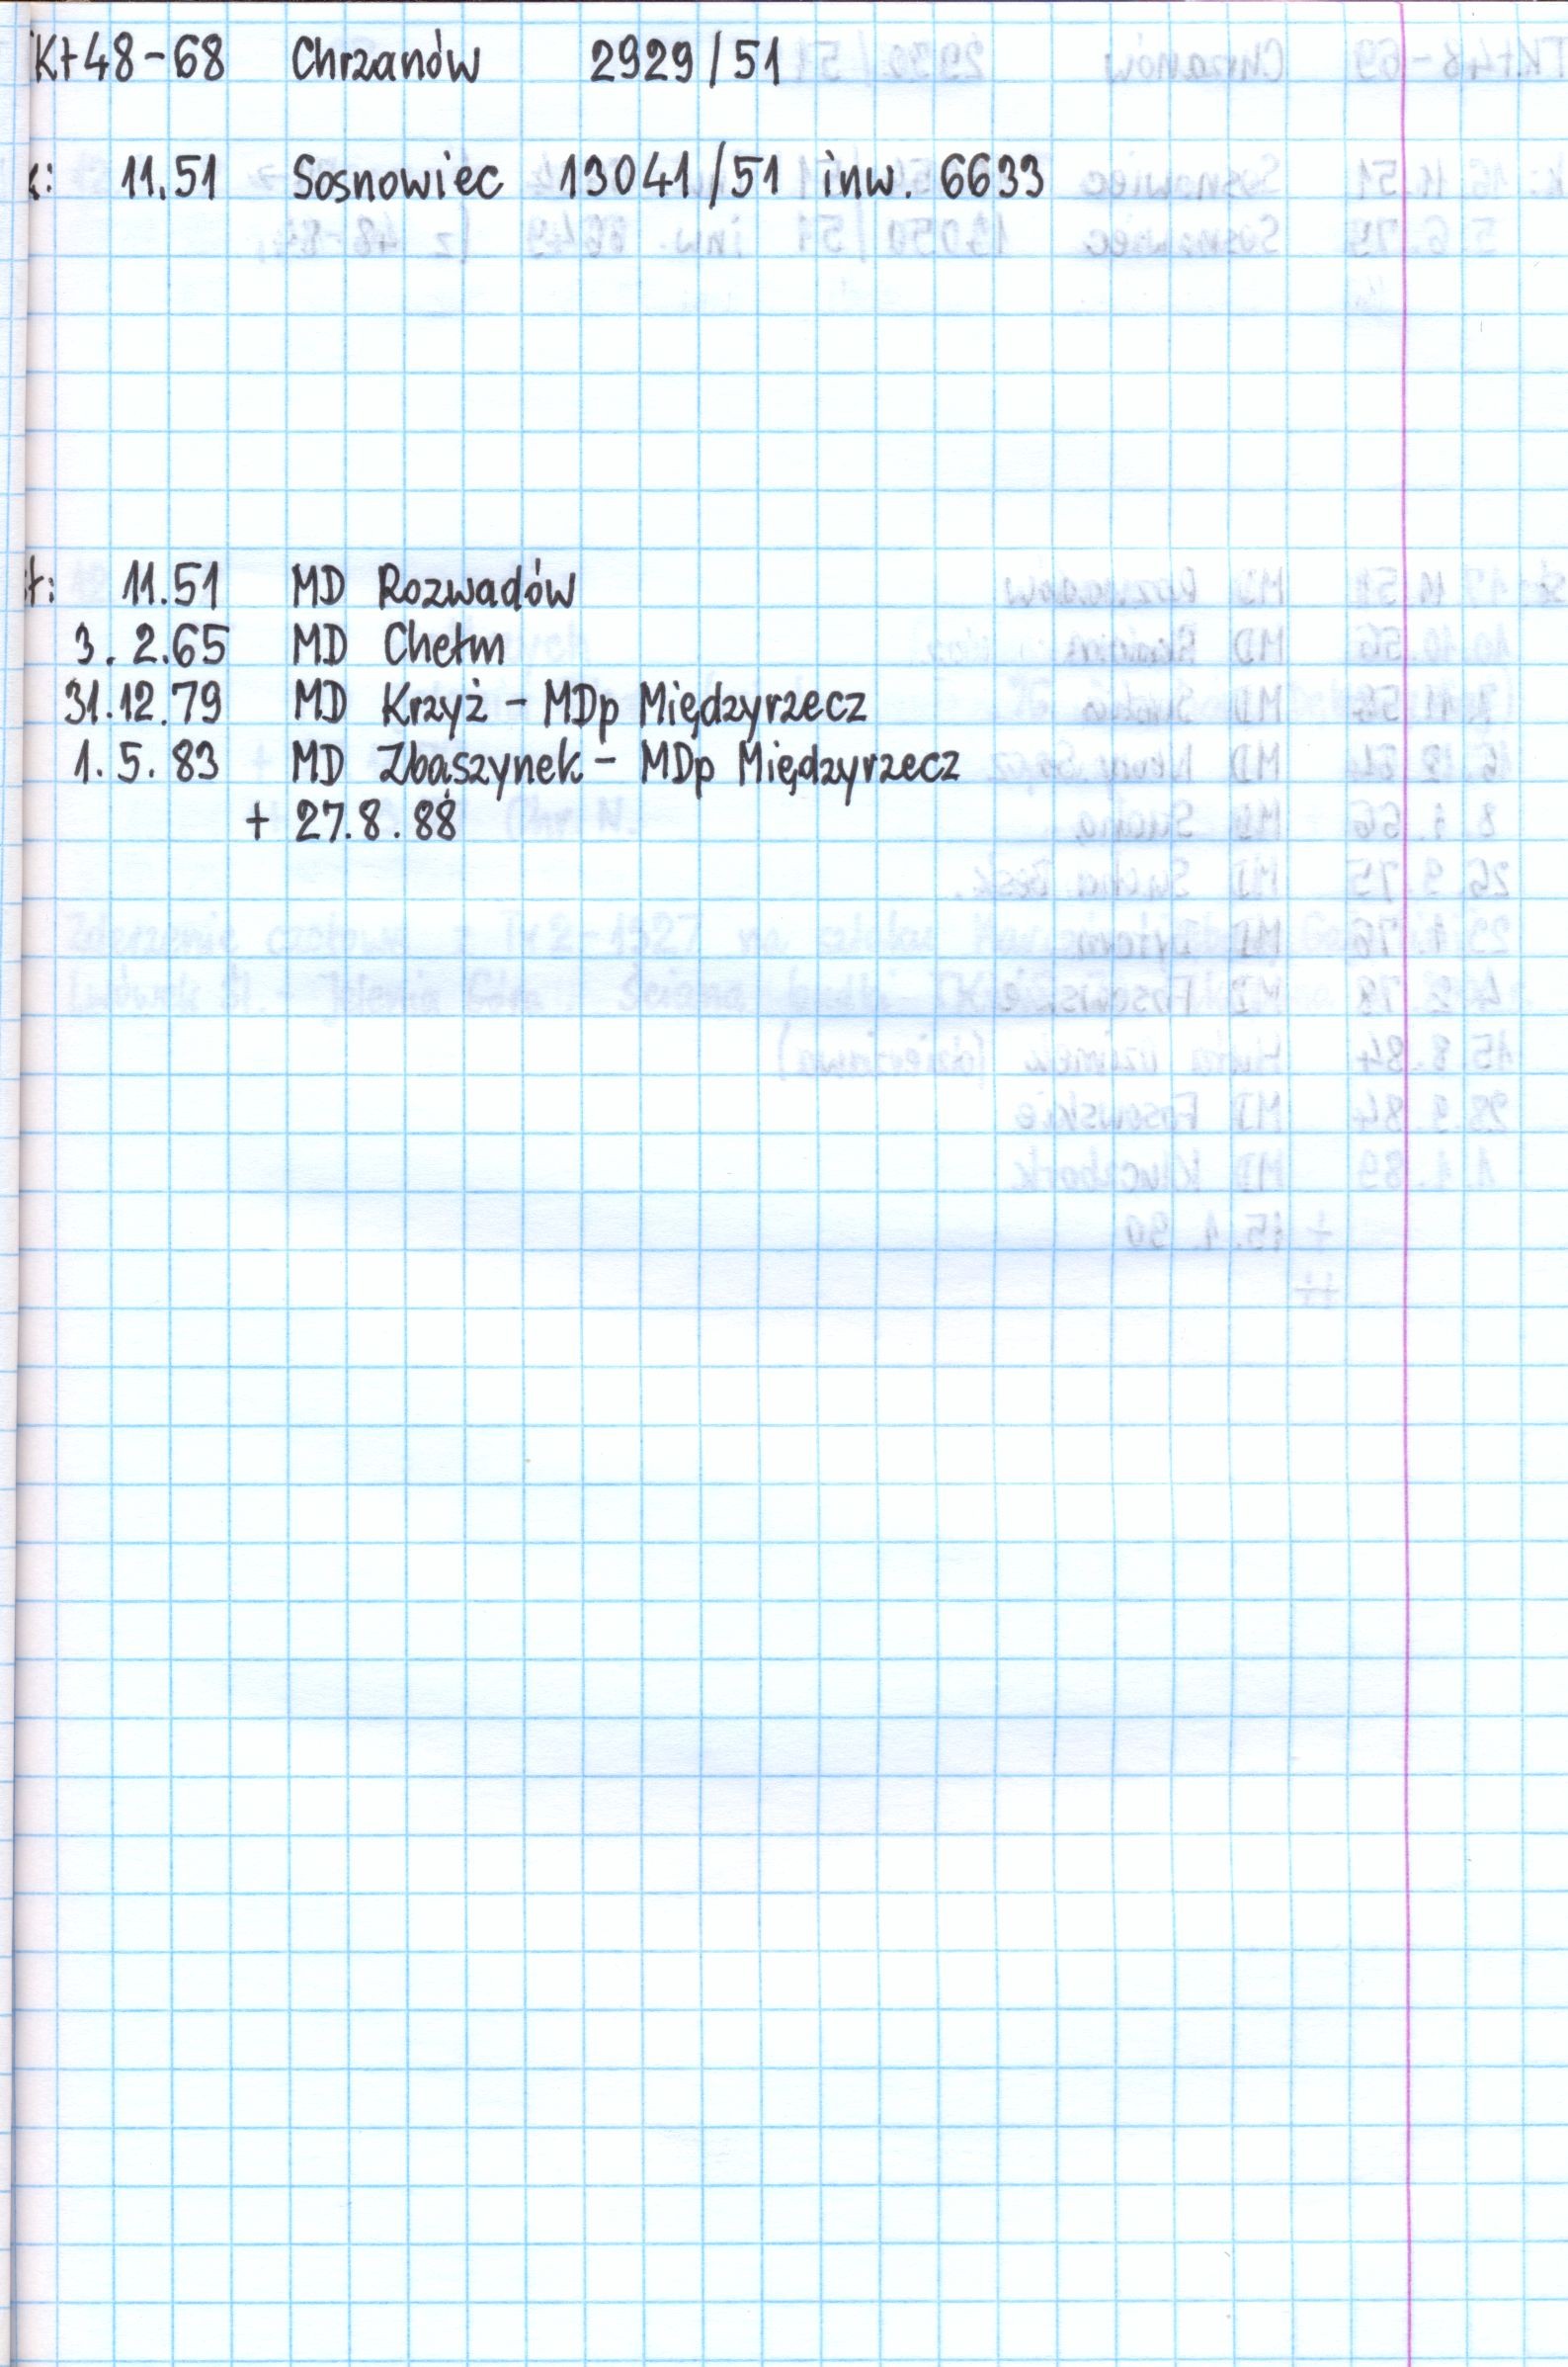 TKt48-68 Chrzanów 2929/51
k: 11.51 Sosnowiec 13041/51 inw. 6633
st: 11.51 MD Rozwadów
3.2.65 MD Chełm
31.12.79 MD Krzyż - MDp Międzyrzecz
1.5.83 MD Zbąszynek - MDp Międzyrzecz
+ 27.8.88